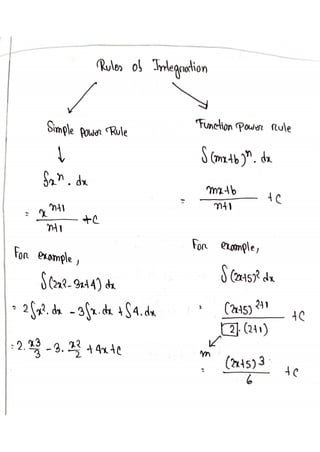 Rules of Integration
Simple Power Rule
↓
∫xⁿ. dx
= x^(n+1)/(n+1) + C
For example,
∫(2x²-3x+4) dx
= 2∫x². dx - 3∫x. dx + ∫4. dx
= 2. x3/3 - 3. x2/2 + 4x + C
Function Power Rule
∫(mx+b)ⁿ. dx
= (mx+b)/(n+1) + C
For example,
∫(2x+5)² dx
= (2x+5)^(2+1)/(2. (2+1)) + C
m
= (2x+5)3/6 + C